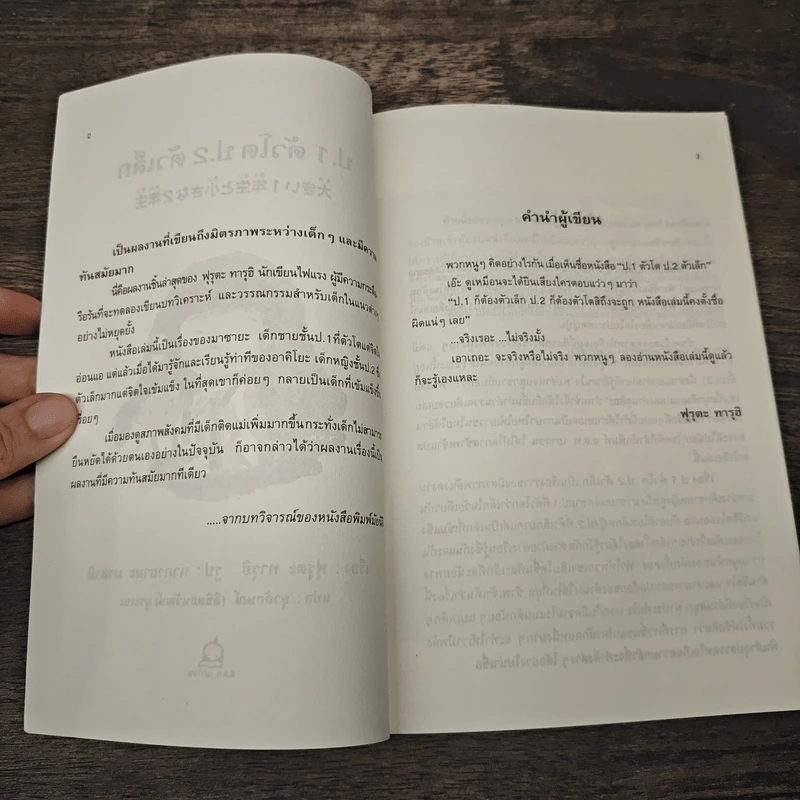 2
เป็นผลงานที่เขียนถึงมิตรภาพระหว่างเด็กๆ และมีความ
ทันสมัยมาก
นี่คือผลงานชิ้นล่าสุดของ ฟุรุตะ ทารุฮิ นักเขียนไฟแรง ผู้มีความกระตือ
รือร้นที่จะทดลองเขียนบทวิเคราะห์ และวรรณกรรมสำหรับเด็กในแนวต่างๆ
อย่างไม่หยุดยั้ง
หนังสือเล่มนี้เป็นเรื่องของมาซายะ เด็กชายชั้นป.1ที่ตัวโตแต่จิตใจ
อ่อนแอ แต่แล้วเมื่อได้มารู้จักและเรียนรู้ท่าทีของอาคิโยะ เด็กหญิงชั้นป.2 ที่
ตัวเล็กมากแต่จิตใจเข้มแข็ง ในที่สุดเขาก็ค่อยๆ กลายเป็นเด็กที่เข้มแข็งขึ้น
รื่อยๆ
เมื่อมองดูสภาพสังคมที่มีเด็กติดแม่เพิ่มมากขึ้นกระทั่งเด็กไม่สามารถ
ยืนหยัดได้ด้วยตนเองอย่างในปัจจุบัน ก็อาจกล่าวได้ว่าผลงานเรื่องนี้เป็น
ผลงานที่มีความทันสมัยมากทีเดียว
.....จากบทวิจารณ์ของหนังสือพิมพ์มัยนิ
คำนำผู้เขียน
พวกหนูๆ คิดอย่างไรกัน เมื่อเห็นชื่อหนังสือ "ป.1 ตัวโต ป.2 ตัวเล็ก"
เอ๊ะ ดูเหมือนจะได้ยินเสียงใครตอบแว่วๆ มาว่า
"ป.1 ก็ต้องตัวเล็ก ป.2 ก็ต้องตัวโตสิถึงจะถูก หนังสือเล่มนี้คงตั้งชื่อ
ผิดแน่ๆ เลย"
...จริงเรอะ ...ไม่จริงมั้ง
เอาเถอะ จะจริงหรือไม่จริง พวกหนูๆ ลองอ่านหนังสือเล่มนี้ดูแล้ว
ก็จะรู้เองแหละ
ฟุรุตะ ทารุฮิ